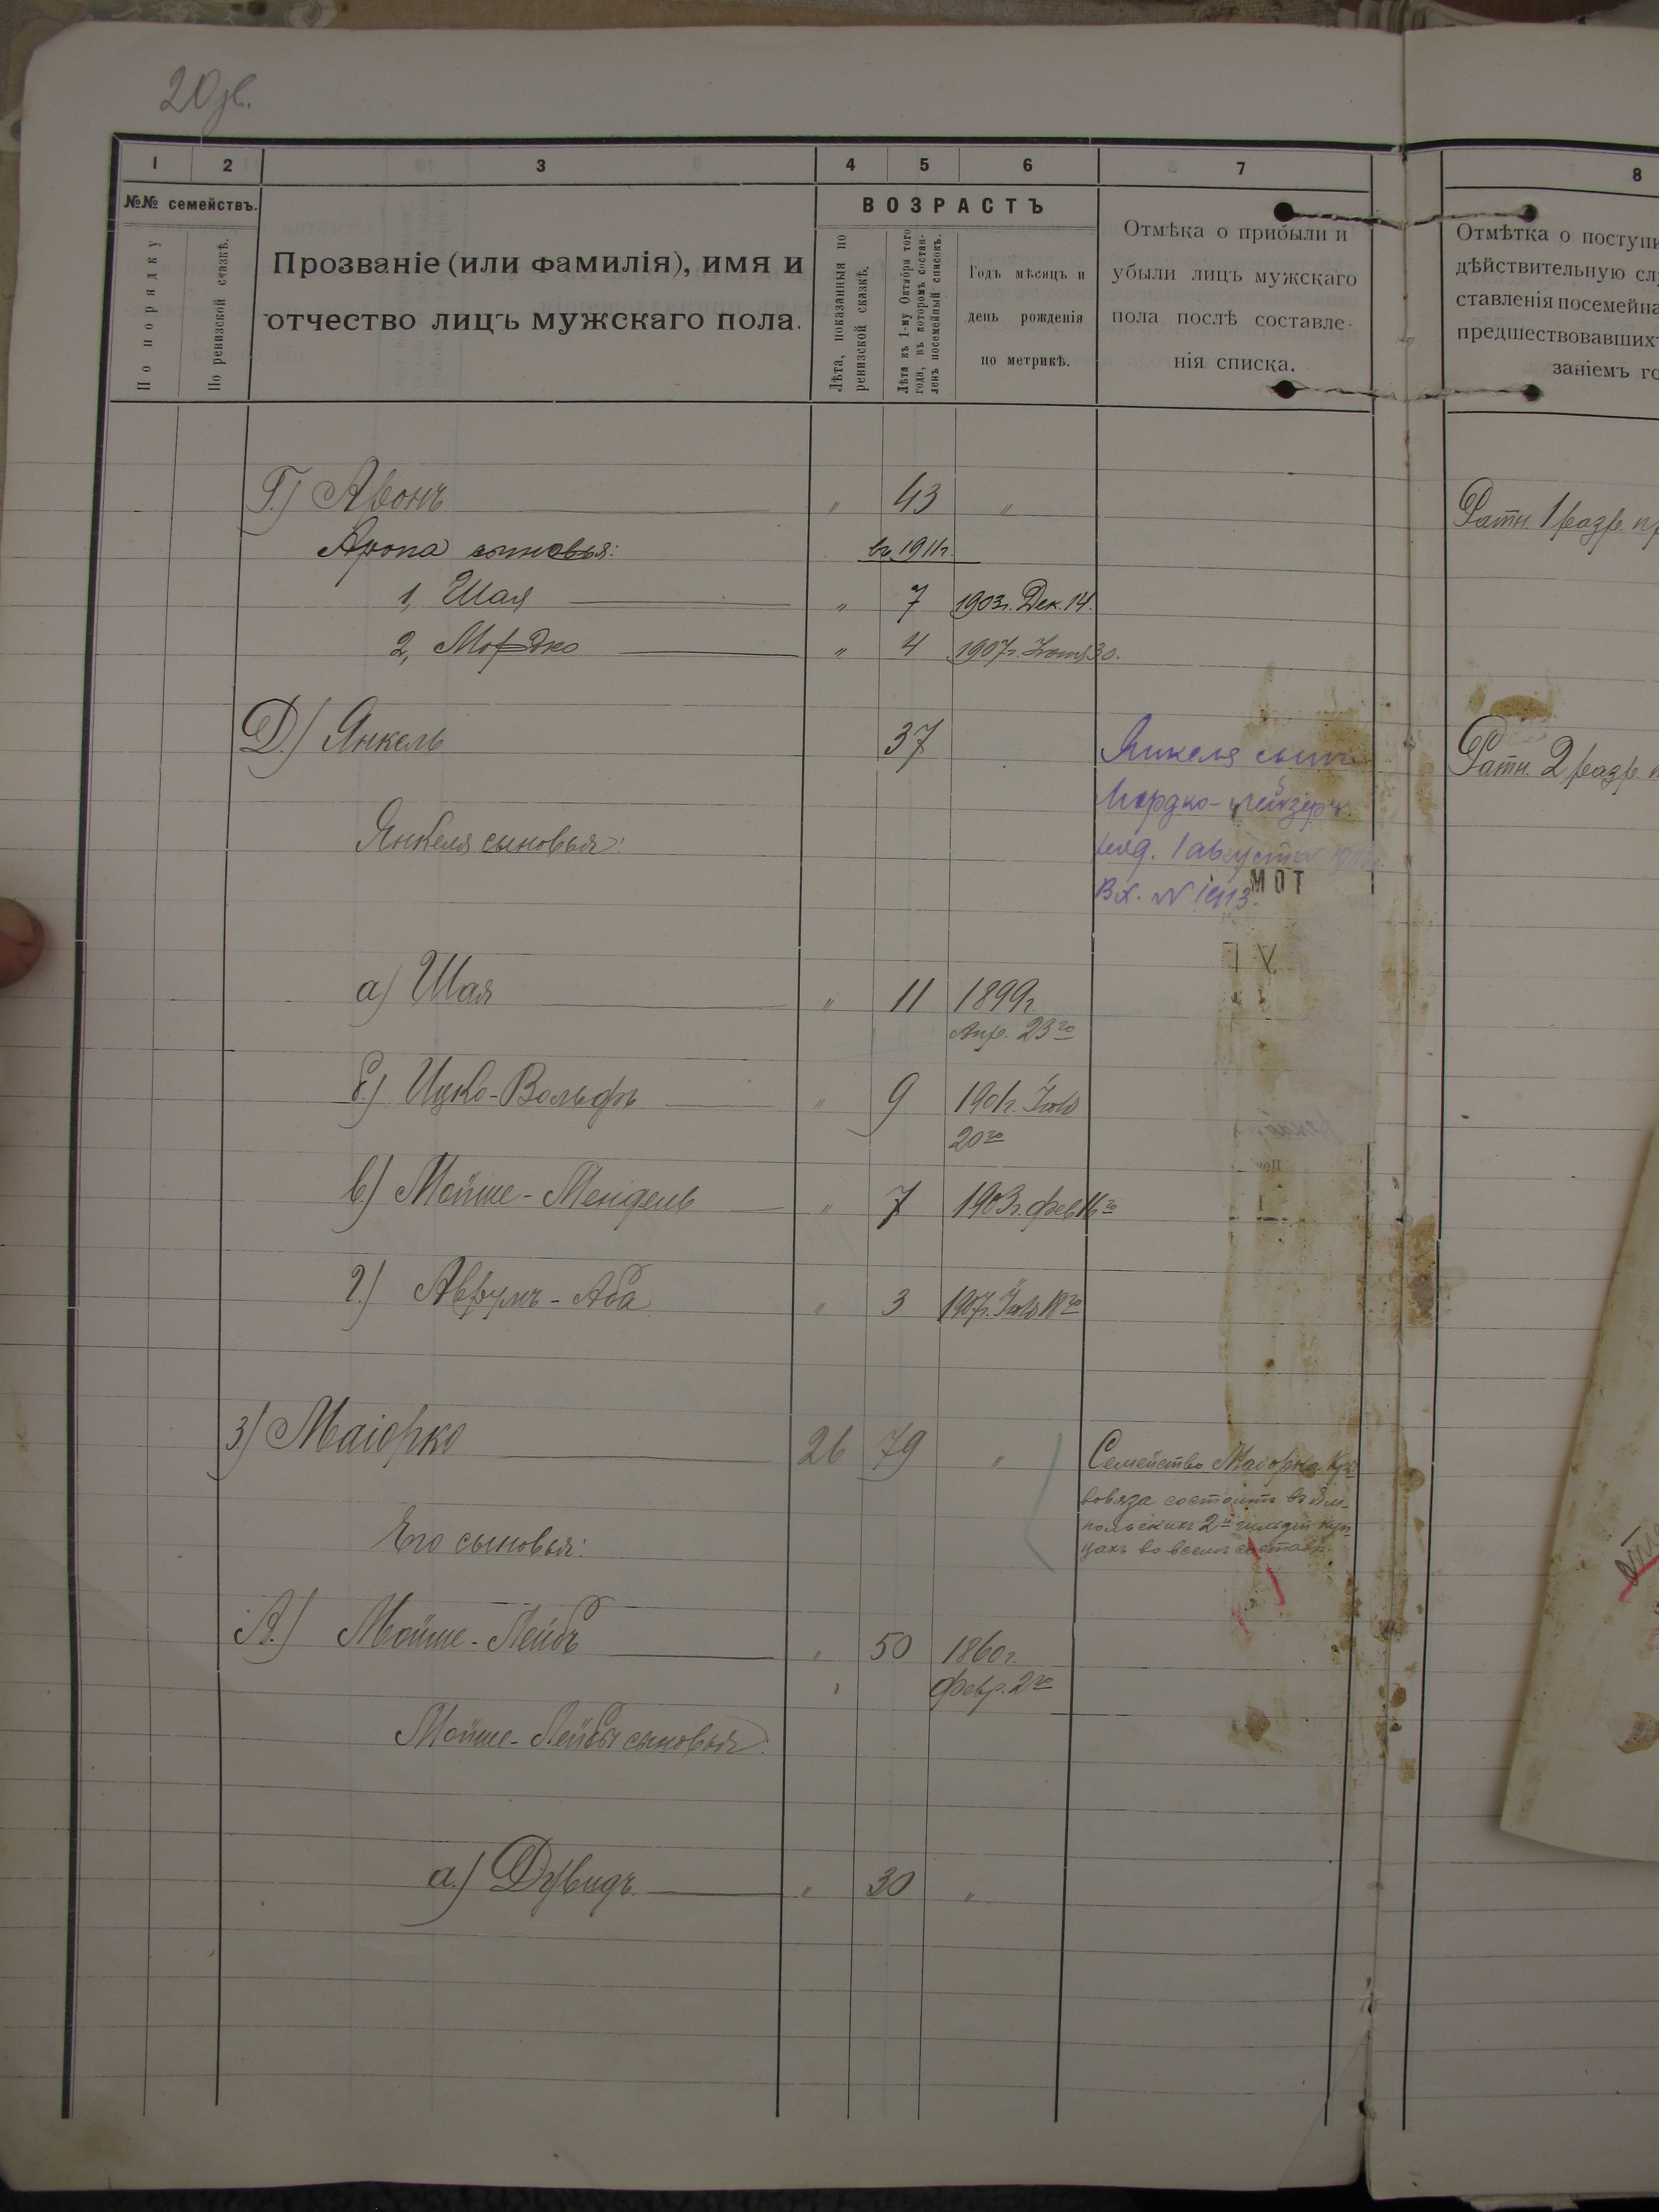 20 зв.
1 2 3 4 5 6 7 8
№№ семействъ.
По порядку
По ревизской сказкѣ.
Прозваніе (или фамилія), имя и
отчество лицъ мужскаго пола.
ВОЗРАСТЪ
Лѣта, показанныя по
ревизской сказкѣ.
Лѣта къ 1-му Октября того
года, въ которомъ состав-
ленъ посемейный списокъ.
Годъ мѣсяцъ и
день рожденія
по метрикѣ.
Отмѣка о прибыли и
убыли лицъ мужскаго
пола послѣ составле-
нія списка.
Отмѣтка о поступи
дѣйствительную сл
ставленія посемейна
предшествовавших
заніемъ го
Г.) Аронъ " 43 " Ратн. 1 разр.
Арона сыновья: въ 1911г.
1, Шая " 7 1903г. Дек. 14.
2, Мордко " 4 1907г. 30.
Д.) Янкель 37 Ратн. 2 разр.
Янкеля сынъ
Мордко-Лейзеръ
рожд. 1 августа
Вх. № 1913.
МОТ
Янкеля сыновья:
а) Шая " 11 1899г.
Апр. 23го
б.) Ицко-Вольфъ " 9 1901г. Іюля
20го
в) Мойше-Мендель " 7 1903г. Фев. 16го
г.) Аврумъ-Аба " 3 1907г. Іюля 18го
3) Маіорко 26 79 "
Семейство Маіорка Кри
вовяза состоитъ въ Ям-
польскихъ 2й гильдіи куп-
цахъ во всемъ составѣ.
Его сыновья:
А.) Мойше-Лейбъ " 50 1860г.
Февр. 2го
Мойше-Лейбы сыновья:
а.) Дувидъ " 30 "